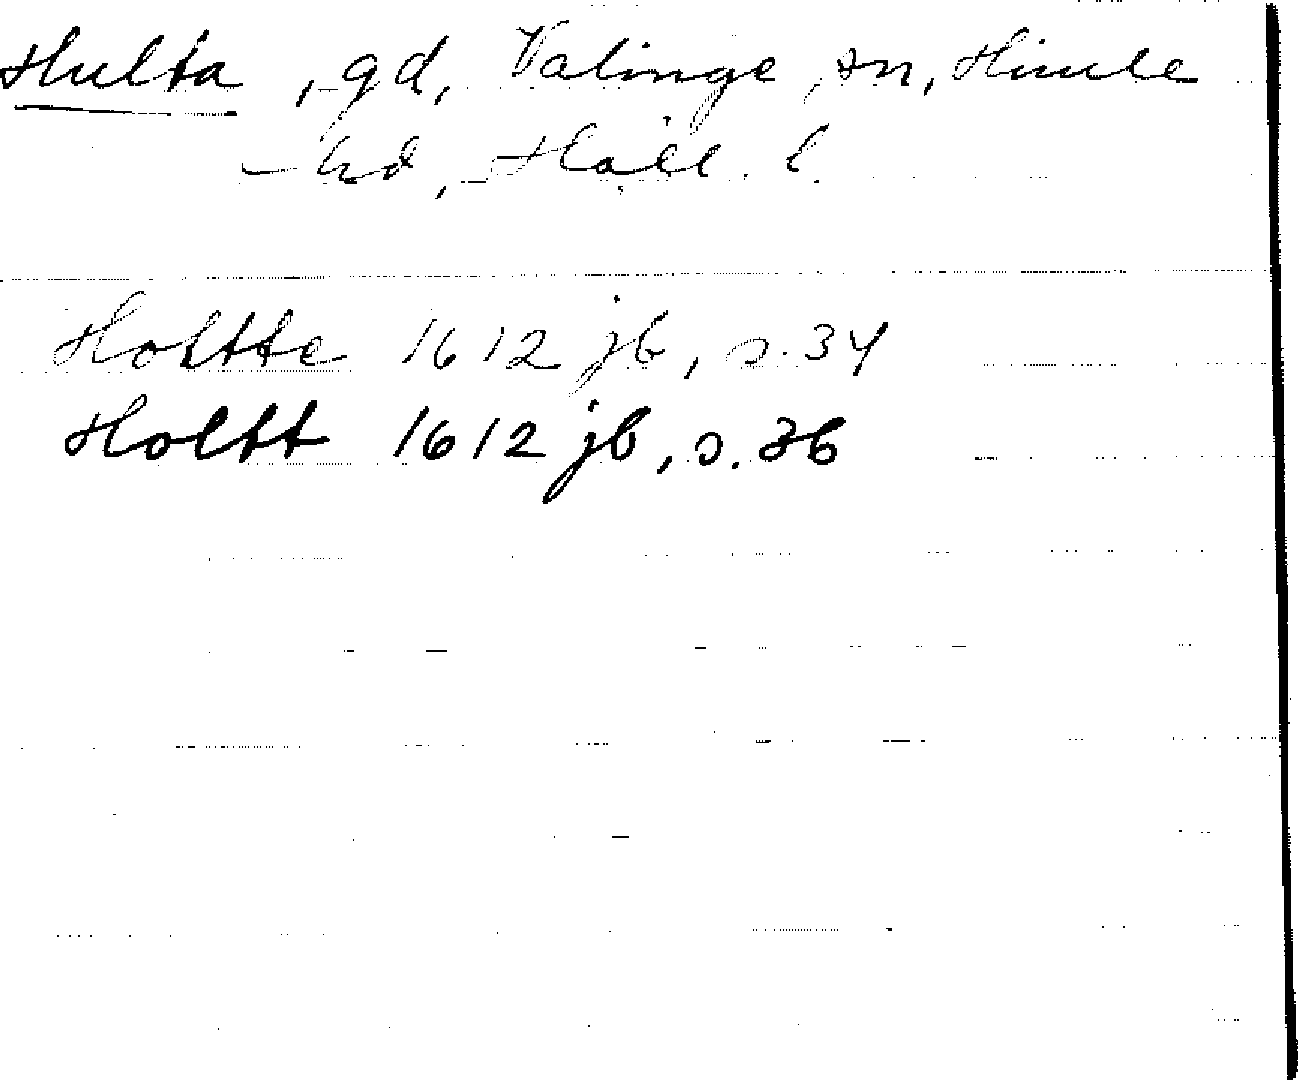 Hulta, gd, Valinge sn, Himle
hd, Hall. l.
Holtte 1612 jb, s. 34
Holtt 1612 jb, s. 36